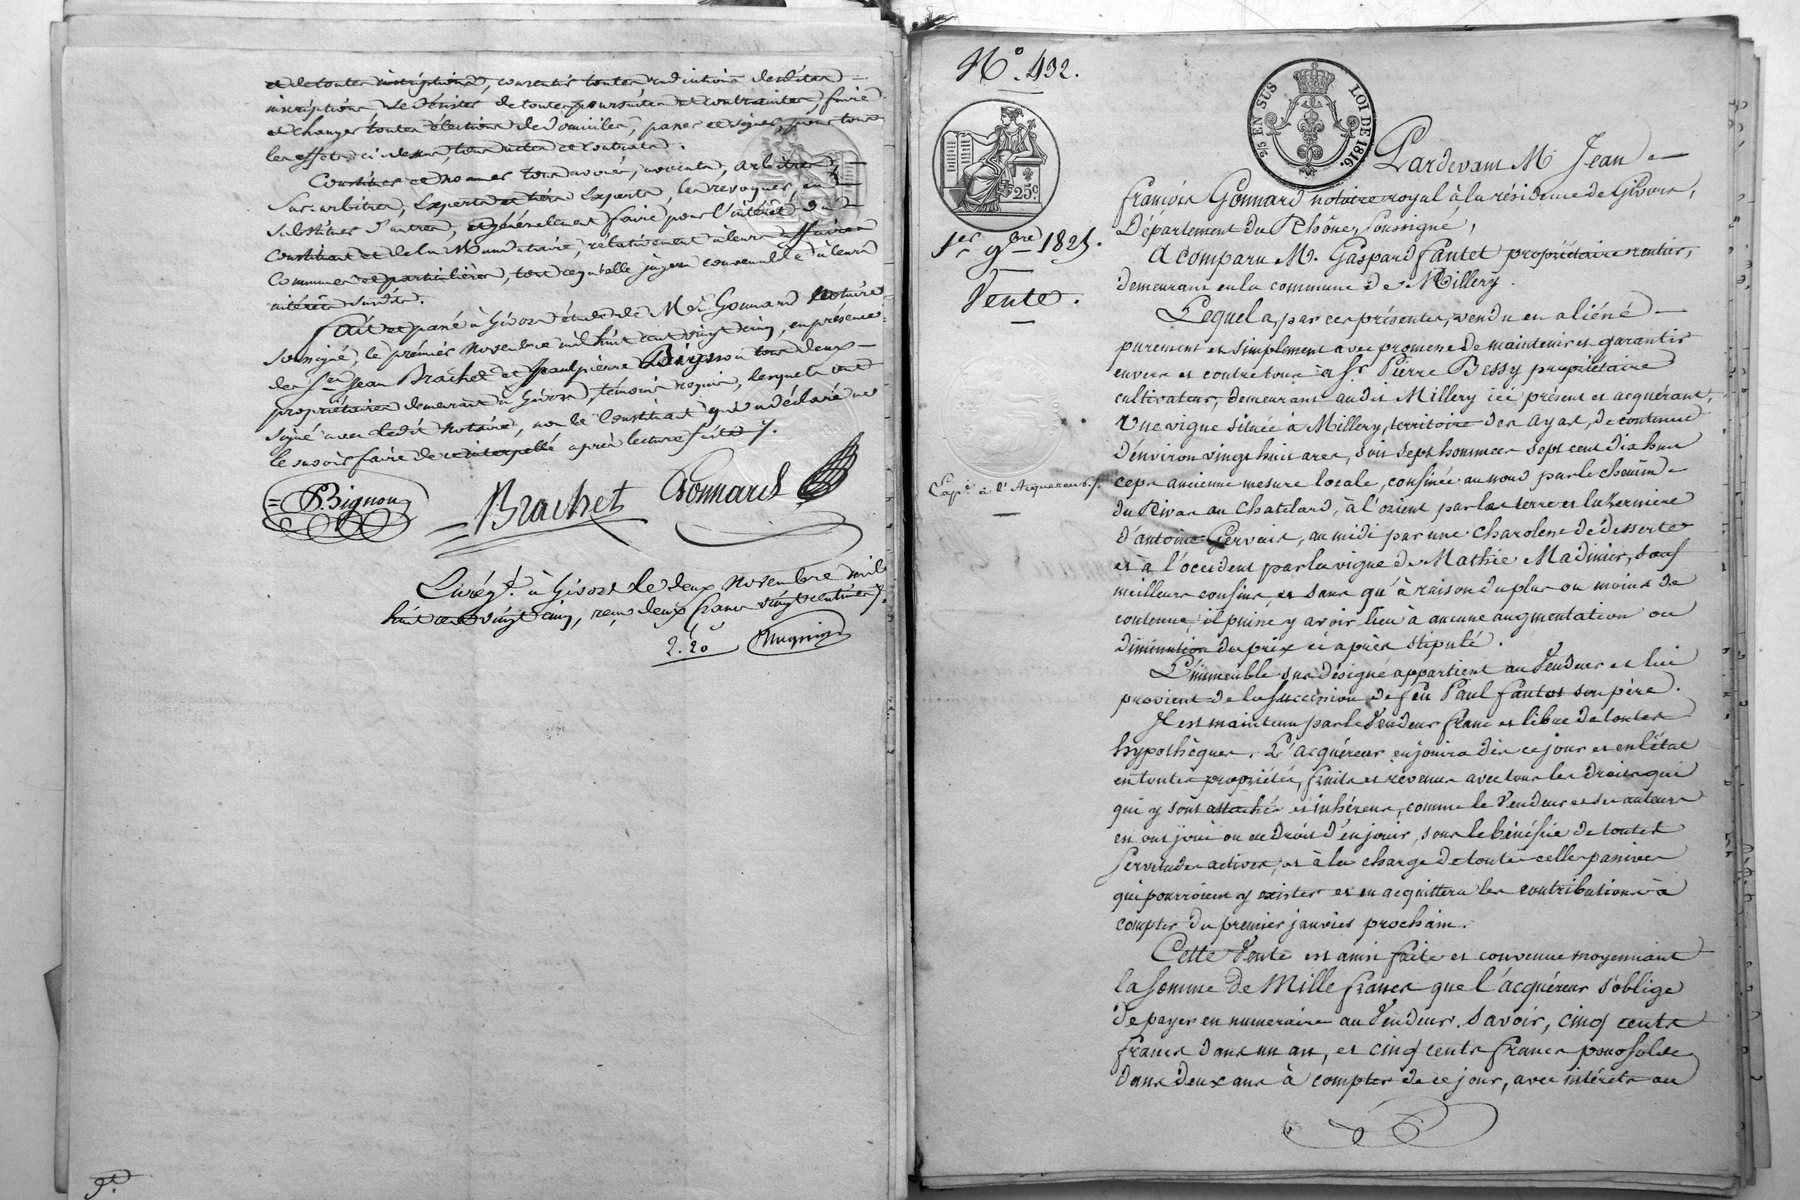 et de toutes inscriptions, consentir toutes radiations desdites
inscriptions se désister de toutes poursuites et contraintes, faire
et changer toutes élections de domiciles, passer et signer, pour tous
les effets ci dessus, tous actes et contrats.
Constituer et nommer tous avoués, avocats, arbitres
sur arbitres, experts et tiers experts, les révoquer, en
substituer d'autres, et généralement faire pour l'intérêt du
constituant et de la Mandataire, relativement à leurs affaires
communes et particulières, tout ce qu'elle jugera convenable à leurs
intérêts susdits.
Fait et passé à Givors étude de Me. Gonnard Notaire
soussigné, le premier Novembre mil huit cent vingt cinq, en présence
des Srs. Jean Brachet et Bignon tous deux
propriétaires demeurant à Givors, témoins requis, lesquels ont
signé avec ledit Notaire, non le Constituant qui a déclaré ne
le savoir faire de ce interpellé après lecture faite.
Bignon
Brachet
Gonnard
Enrég.t à Givors le deux Novembre mil
huit cent vingt cinq, reçu deux francs vingt centimes
2.20
No. 492.
25c.
25 EN SUS
LOI DE 1816.
1er. 9bre 1825.
Vente.
à l'Acquereur
Pardevant Me Jean
françois Gonnard notaire royal à la résidence de Givors,
Département du Rhône, soussigné,
A comparu M. Gaspard Fantet propriétaire rentier,
demeurant en la commune de Millery.
Lequel a, par ces présentes, vendu en aliéné
purement et simplement avec promesse de maintenir et garantir
envers et contre tous à Sr. Pierre Bessy propriétaire
cultivateur, demeurant audit Millery ici présent et acquérant,
Une vigne située à Millery, territoire des Ayas, de contenue
d'environ vingt huit ares, soit sept hommées sept cent dix huit
ceps ancienne mesure locale, confinée au nord par le chemin
du Rivat au Chatelard, à l'orient par les terre et luzernière
d'antoine Gervais, au midi par une charolese de desserte
et à l'occident par la vigne de Mathie Madinier, sauf
meilleurs confins, et sans qu'à raison du plus ou moins de
contenue, il puisse y avoir lieu à aucune augmentation ou
diminution du prix ci après stipulé.
L'immeuble sus désigné appartient au Vendeur et lui
provient de la succession de feu Paul Fantet son père.
Il est maintenu par le Vendeur franc et libre de toutes
hypothèques. L'acquéreur en jouira dès ce jour et en l'état
en toute propriété, fruits et revenus avec tous les droits qui
qui y sont attachés et inhérens, comme le Vendeur et ses auteurs
en ont joui ou eu droit d'en jouir, sous le bénéfice de toutes
servitudes actives, et à la charge de toutes celles passives
qui pourroient y exister et en acquittera les contributions à
compter du premier janvier prochain.
Cette Vente est ainsi faite et convenue moyennant
la somme de Mille francs que l'acquéreur s'oblige
de payer en numeraire au Vendeur, savoir, cinq cents
francs dans un an, et cinq cents francs pour solde
dans deux ans à compter de ce jour, avec intérêts au